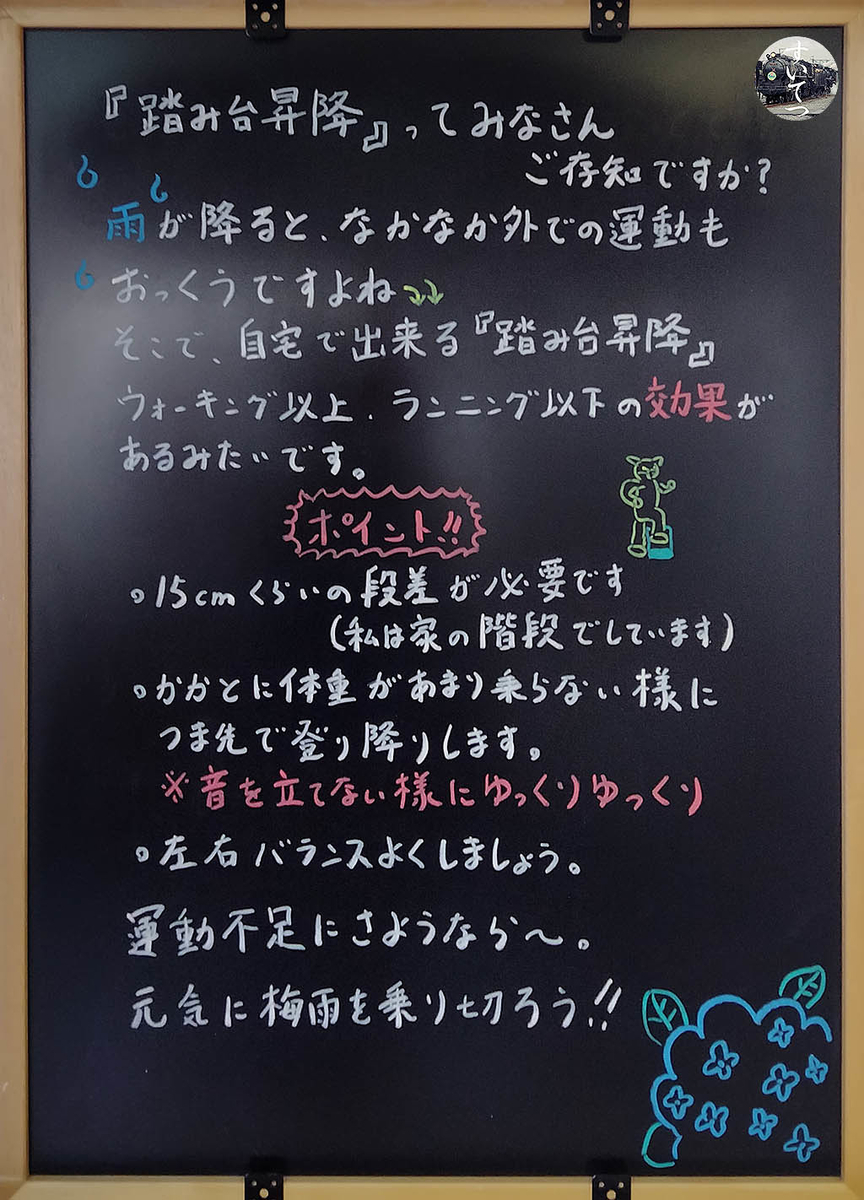 すいてつ
『踏み台昇降』ってみなさん
ご存知ですか?
雨が降ると、なかなか外での運動も
おっくうですよね
そこで、自宅で出来る『踏み台昇降』
ウォーキング以上、ランニング以下の効果が
あるみたいです。
ポイント!!
。15cmくらいの段差が必要です
(私は家の階段でしています)
。かかとに体重があまり乗らない様に
つま先で登り降りします。
※音を立てない様にゆっくりゆっくり
。左右バランスよくしましょう。
運動不足にさようなら〜。
元気に梅雨を乗り切ろう!!